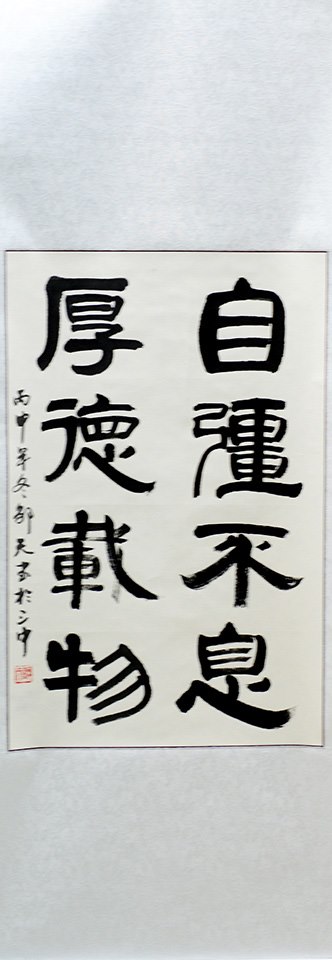 自彊不息
厚德載物
丙申年冬部天書於三中